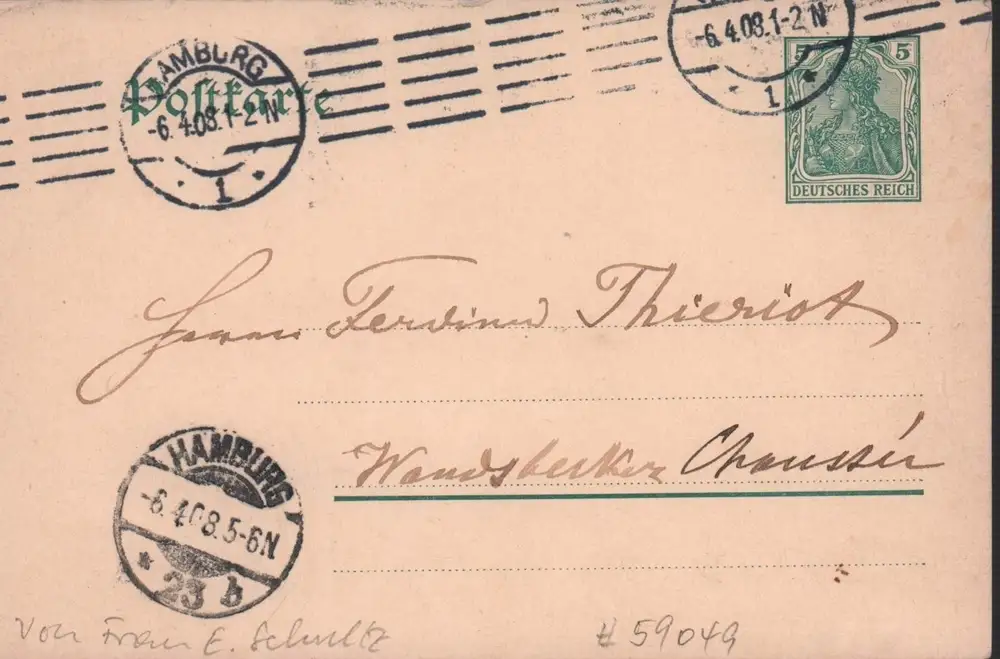 HAMBURG
-6.4.08.1-2N
1
Postkarte
-6.4.08.1-2N
1
5 5
DEUTSCHES REICH
Herrn Ferdinand Thieriot
Wandsbecker Chaussée
HAMBURG
-6.4.08.5-6N
* 23 b
von Frau E. Schultz
# 59049